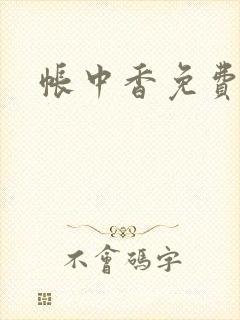 帳中香免費
不會碼字